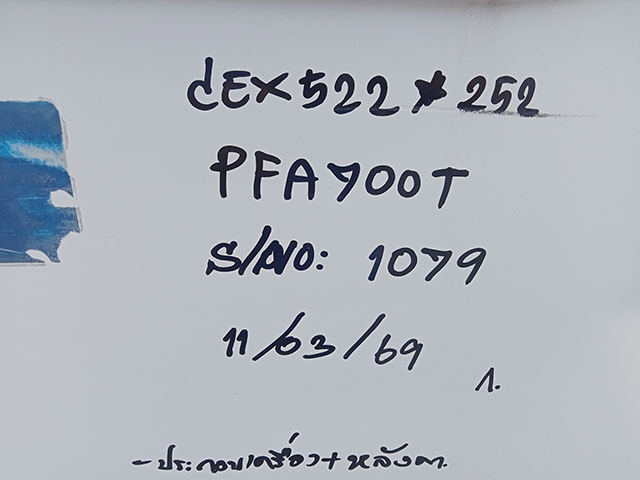 dEX522*252
PFA700T
S/NO: 1079
11/03/69
ก.
-ประกอบเครื่อง+หลังคา.